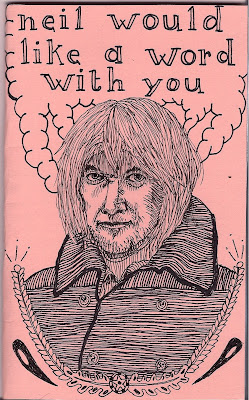 neil would
like a word
with you